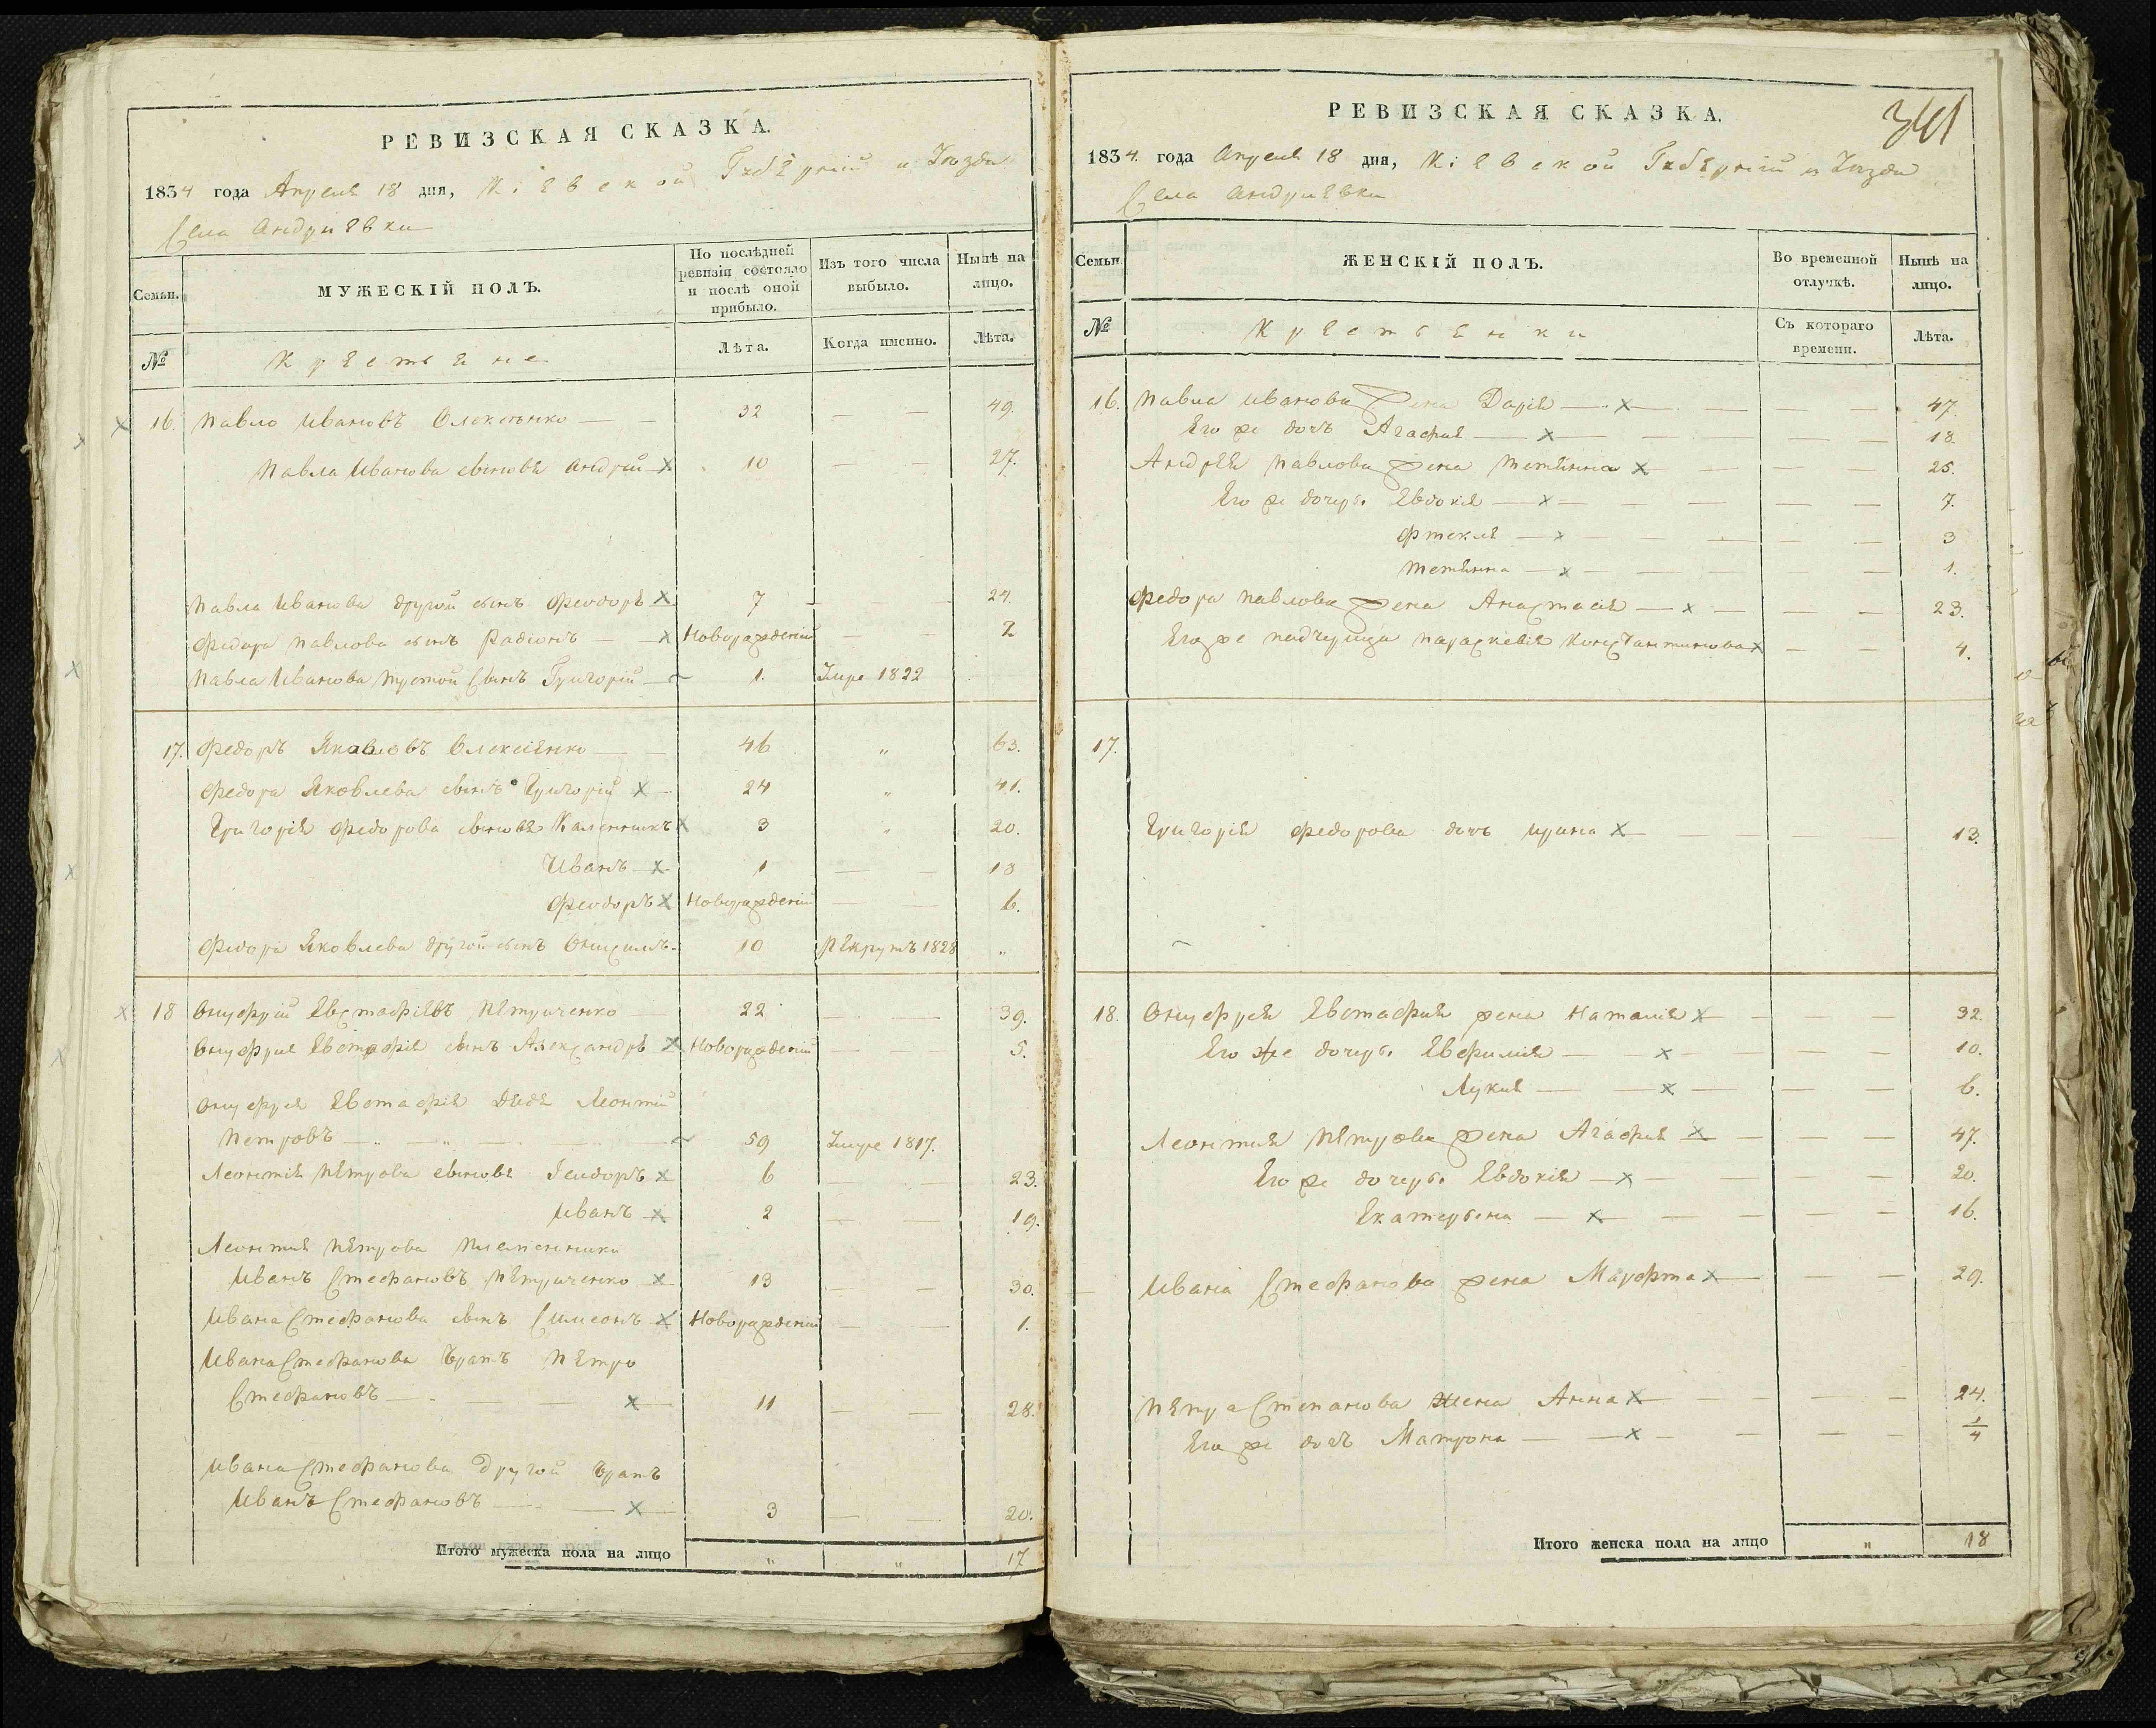 РЕВИЗСКАЯ СКАЗКА.
1834 года Апреля 18 дня, Кіевской Губерніи и Уезда
Села Андриевки
Семьи. МУЖЕСКІЙ ПОЛЪ. По послѣдней ревизіи состояло и послѣ оной прибыло. Изъ того числа выбыло. Нынѣ на лицо.
№ Крестьяне Лѣта. Когда именно. Лѣта.
16. Павло Ивановъ Олексѣнко — — 32 — — 49.
Павла Иванова сыновя Андрій 10 — — 27.
Павла Иванова другой сынъ Феодоръ 7 — — 24.
Федора Павлова сынъ Радіонъ — Новорожденій — — 2
Павла Иванова третой Сынъ Григорій — 1. Умре 1822
17. Федоръ Яковловъ Олексіенко — 46 „ 63.
Федора Яковлева сынъ Григорій 24 „ 41.
Григорія Федорова сыновя Каленникъ 3 „ 20.
Иванъ 1 — — 18
Феодоръ Новорожденій — — 6.
Федора Яковлева другой сынъ Онисимъ 10 Рекрутъ 1828 „
18 Онуфрій Евстафіевъ Петриченко — 22 — — 39.
Онуфрия Евстафія сынъ Александръ Новорожденій — — 5.
Онуфрія Евстафія Дядя Леонтій
Петровъ — — 59 Умре 1817.
Леонтія Петрова сыновя Геидоръ 6 — — 23.
Иванъ 2 — — 19.
Леонтия Петрова племенники
Иванъ Стефановъ Петриченко 13 — — 30.
Ивана Стефанова сынъ Симеонъ Новорожденій — — 1.
Ивана Стефанова братъ Петро
Стефановъ — — 11 — — 28.
Ивана Стефанова другой братъ
Иванъ Стефановъ — 3 — — 20.
Итого мужеска пола на лицо „ „ 17
341
РЕВИЗСКАЯ СКАЗКА.
1834. года Апреля 18 дня, Кіевской Губерніи и Уезда
Села Андриевки
Семьи. ЖЕНСКІЙ ПОЛЪ. Во временной отлучкѣ. Нынѣ на лицо.
№ Крестьянки Съ котораго времени. Лѣта.
16. Павла Иванова жена Дарія — — 47.
Его же дочъ Агафия — — 18.
Андрея Павлова жена Тетянна — — 25.
Его же дочери. Евдокія — — 7.
Фтекля — — 3
Тетянна — — 1.
Федора Павлова жена Анастасія — — 23.
Его же падчерица Параскевія Константинова — — 4.
17.
Григорія Федорова дочъ Ирина — — 13.
18. Онуфрея Евстафия жена Наталия — — 32.
Его же дочери. Евфимия — — 10.
Лукия — — 6.
Леонтия Петрова жена Агафия — — 47.
Его же дочери. Евдокія — — 20.
Екатерена — — 16.
Ивана Стефанова жена Марфта — — 29.
Петра Степанова жена Анна — — 24.
Его же дочъ Матрона — — 1/4
Итого женска пола на лицо „ 18